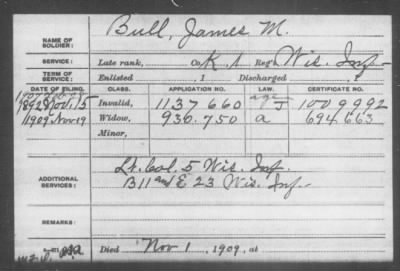 NAME OF SOLDIER: Bull, James M.
SERVICE: Late rank, Co. K, 1 Reg't Wis. Inf.
TERM OF SERVICE: Enlisted , 1 Discharged , 1
DATE OF FILING. CLASS. APPLICATION NO. LAW. CERTIFICATE NO.
1892 Nov. 15 Invalid, 1137 660 age J 1009992
1909 Nov 19 Widow, 930.750 a 694.663
Minor,
ADDITIONAL SERVICES: Lt. Col. 5 Wis. Inf.
B 11 and E 23 Wis. Inf.
REMARKS:
Died Nov 1, 1909, at